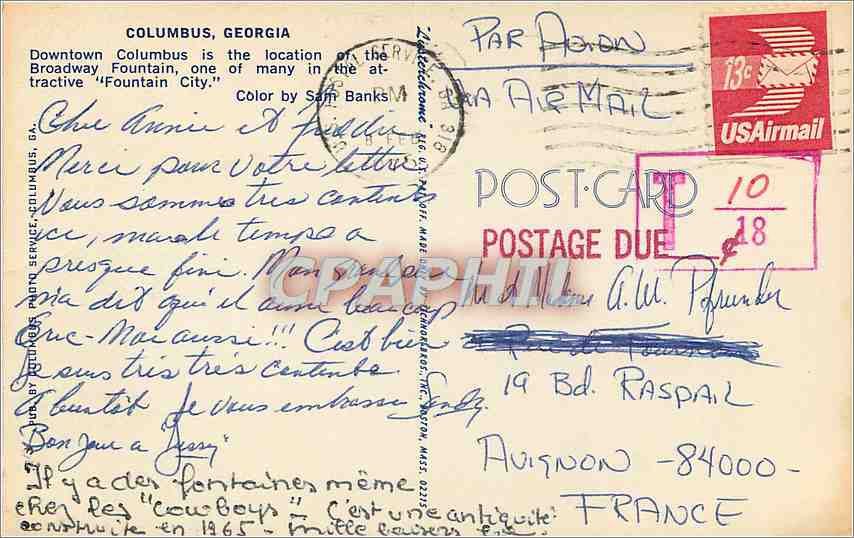 COLUMBUS, GEORGIA
Downtown Columbus is the location of the
Broadway Fountain, one of many in the at-
tractive "Fountain City."
Color by Sam Banks
Cher Annie et Freddie
Merci pour votre lettre
Nous sommes très contents
ici, mais le temps a
presque fini. Mon
m'a dit qu'il aime beaucoup
Eric - Moi aussi!!! C'est bien
Je suis très très contente.
A bientôt Je vous embrasse Sandy.
"Bonjour a Jessy"
Il y a des fontaines même
chez les "cowboys" - C'est une antiquité
construite en 1965 - mille baisers
PUB. BY COLUMBUS PHOTO SERVICE, COLUMBUS, GA.
PM
8 FEB
318
PAR AVION
VIA AIR MAIL
13c
USAirmail
POST-CARD
T 10
18
POSTAGE DUE ¢
CPAPHIL
M et Mme A.W. Pfrunder
19 Bd. RASPAIL
AVIGNON -84000-
FRANCE